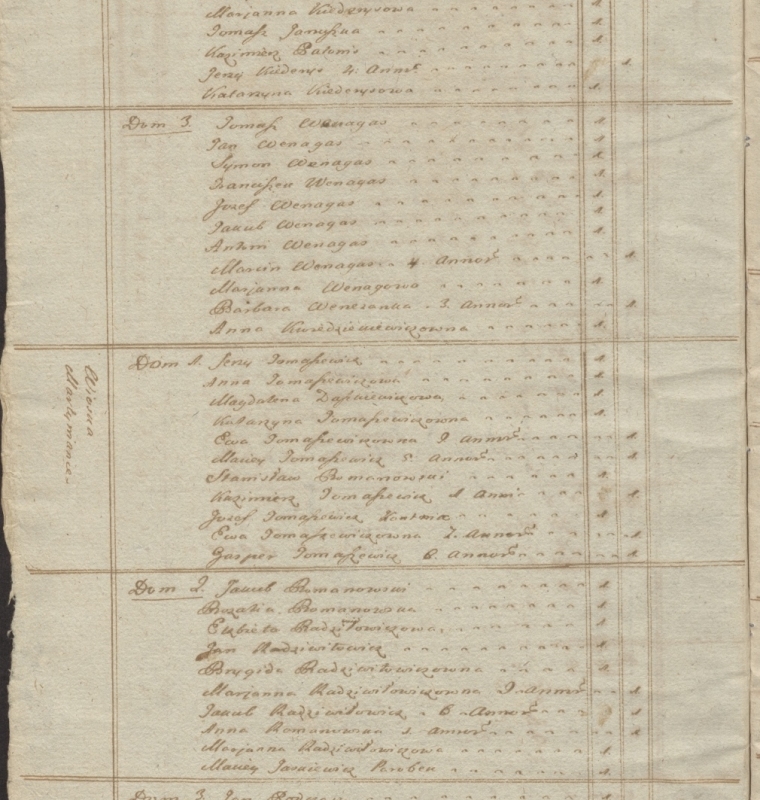 Marjanna Kiedzysowa 1.
Tomasz Januszka 1.
Kazimierz 1.
Jerzy 4. Annor. 1.
Katarzyna 1.
Dom 3. Tomasz Wenagas 1.
Jan Wenagas 1.
Symon Wenagas 1.
Franciszek Wenagas 1.
Jozef Wenagas 1.
Jakub Wenagas 1.
Antoni Wenagas 1.
Marcin Wenagas 4. Annor. 1.
Marjanna Wenagowa 1.
Barbara 3. Annor. 1.
Anna 1.
Wioska
Dom 1. Jerzy Tomaszewicz 1.
Anna Tomaszewiczowa 1.
Magdalena Daszkiewiczowa 1.
Katarzyna Tomaszewiczowna 1.
Ewa Tomaszewiczowna 9 Annor. 1.
Maciey Tomaszewicz 5. Annor. 1.
Stanisław Romanowski 1.
Kazimierz Tomaszewicz 1. Anni 1.
Jozef Tomaszewicz 1.
Ewa Tomaszewiczowna 7. Annor. 1.
Gasper Tomaszewicz 6. Annor. 1.
Dom 2. Jakub Romanowski 1.
Rozalia Romanowska 1.
Elzbieta Radziwiłowiczowa 1.
Jan Radziwiłowicz 1.
Brygida Radziwiłowiczowna 1.
Marjanna Radziwiłowiczowna 9. Annor. 1.
Jakub Radziwiłowicz 6. Annor. 1.
Anna Romanowska 1. Annor. 1.
Marjanna Radziwiłowiczowa 1.
Maciey Jasiewicz Parobek 1.
Dom 3. Jan